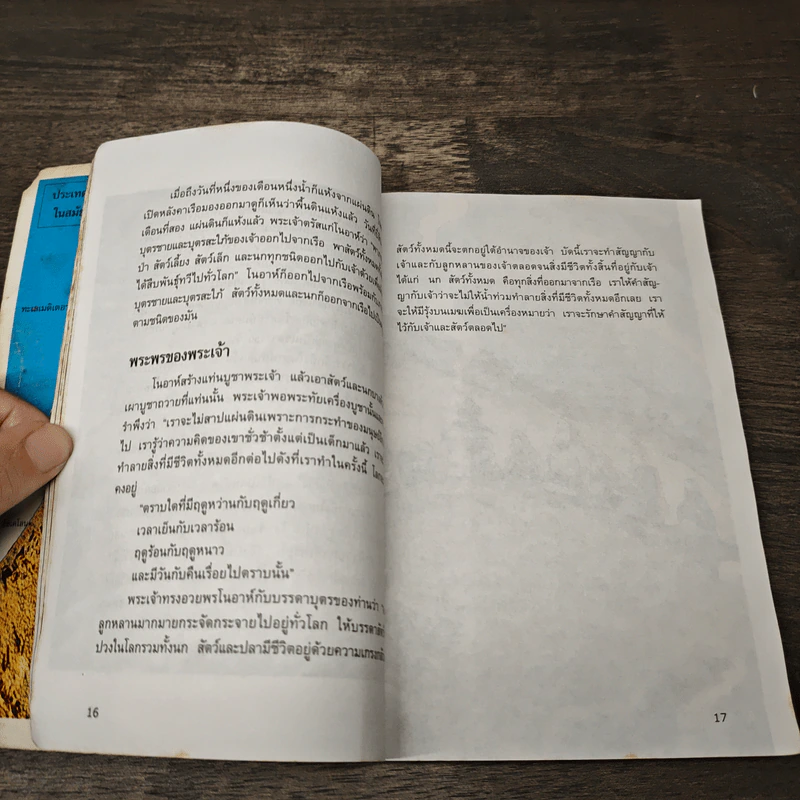 ประเทศ
ในสมัย
ทะเลเมดิเตอร์
เมื่อถึงวันที่หนึ่งของเดือนหนึ่งน้ำก็แห้งจากแผ่นดิน
เปิดหลังคาเรือมองออกมาดูก็เห็นว่าพื้นดินแห้งแล้ว
เดือนที่สอง แผ่นดินก็แห้งแล้ว พระเจ้าตรัสแก่โนอาห์ว่า
บุตรชายและบุตรสะใภ้ของเจ้าออกไปจากเรือ พาสัตว์ทั้งหมด
ป่า สัตว์เลี้ยง สัตว์เล็ก และนกทุกชนิดออกไปกับเจ้าด้วย
ได้สืบพันธุ์ทวีไปทั่วโลก" โนอาห์ก็ออกไปจากเรือพร้อมกับ
บุตรชายและบุตรสะใภ้ สัตว์ทั้งหมดและนกก็ออกจากเรือไป
ตามชนิดของมัน
พระพรของพระเจ้า
โนอาห์สร้างแท่นบูชาพระเจ้า แล้วเอาสัตว์และนก
เผาบูชาถวายที่แท่นนั้น พระเจ้าพอพระทัยเครื่องบูชานั้น
รำพึงว่า "เราจะไม่สาปแผ่นดินเพราะการกระทำของมนุษย์
ไป เรารู้ว่าความคิดของเขาชั่วช้าตั้งแต่เป็นเด็กมาแล้ว
ทำลายสิ่งที่มีชีวิตทั้งหมดอีกต่อไปดังที่เราทำในครั้งนี้
คงอยู่
"ตราบใดที่มีฤดูหว่านกับฤดูเกี่ยว
เวลาเย็นกับเวลาร้อน
ฤดูร้อนกับฤดูหนาว
และมีวันกับคืนเรื่อยไปตราบนั้น"
พระเจ้าทรงอวยพรโนอาห์กับบรรดาบุตรของท่านว่า
ลูกหลานมากมายกระจัดกระจายไปอยู่ทั่วโลก ให้บรรดาสัตว์
ปวงในโลกรวมทั้งนก สัตว์และปลามีชีวิตอยู่ด้วยความเกรงกลัว
16
สัตว์ทั้งหมดนี้จะตกอยู่ใต้อำนาจของเจ้า บัดนี้เราจะทำสัญญากับ
เจ้าและกับลูกหลานของเจ้าตลอดจนสิ่งมีชีวิตทั้งสิ้นที่อยู่กับเจ้า
ได้แก่ นก สัตว์ทั้งหมด คือทุกสิ่งที่ออกมาจากเรือ เราให้คำสัญ-
ญากับเจ้าว่าจะไม่ให้น้ำท่วมทำลายสิ่งที่มีชีวิตทั้งหมดอีกเลย เรา
จะให้มีรุ้งบนเมฆเพื่อเป็นเครื่องหมายว่า เราจะรักษาคำสัญญาที่ให้
ไว้กับเจ้าและสัตว์ตลอดไป"
17